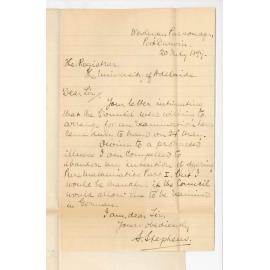 Wesleyan Parsonage,
Port Darwin,
20 July 1897.
The Registrar
The University of Adelaide.
Dear Sir,
Your letter intimating
that the Council were willing to
arrange for an examination
came duly to hand on 24 May.
Owing to a protracted
illness I am compelled to
abandon my intention of
Pure Mathematics Part I. but I
would be grateful if the Council
would allow me to be examined
in German.
I am, dear Sir,
Yours obediently,
A. Stephens.